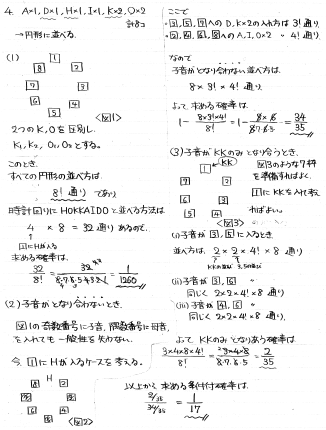 4. A×1, D×1, H×1, I×1, K×2, O×2
計8コ
→円形に並べる.
(1)
1
8 2
7 3
6 4
5
<図1>
2つの K, O を区別し、
K₁, K₂, O₁, O₂ とする。
このとき、
すべての円形の並べ方は.
8! 通り であり
時計回りに HOKKAIDO と並べる方法は
4 × 8 = 32 通り あるので、
1にHが入る
求める確率は.
32/8! = 32/8·7·6·5·4·3·2·1 = 1/1260
(2) 子音がとなり合わないとき、
図1の奇数番に子音、偶数番に母音、
を入れても一般性を失わない.
今、1にHが入るケースを考える。
H
8 2
7 3
6 4
5
<図2>
ここで
・3, 5, 7へのD, K×2の入れ方は 3! 通り
・2, 4, 6, 8へのA, I, O×2 〃 4! 通り
なので
子音がとなり合わない並べ方は.
8 × 3! × 4! 通り.
よって 求める確率は
1 - 8×3!×4!/8! = 1 - 8×6/8·7·6·5 = 34/35
(3) 子音がKKのみとなり合うとき、
1 KK
7 2
6 3
5 4
<図3>
図3のような7枠
を準備すればよく、
1にKKを入れて考え
ればよい。
(i) 子音が 3, 5 に入るとき
並べ方は 2 × 2 × 4! × 8 通り
(ii) 子音が 3, 6 〃
同じく 2×2×4!×8 通り.
(iii) 子音が 4, 6 〃
同じく 2×2×4!×8 通り.
よって KKのみとなりあう確率は
3×4×8×4!/8! = 3×4×8/8·7·6·5 = 2/35
以上から 求める条件付確率は.
2/35 / 34/35 = 1/17